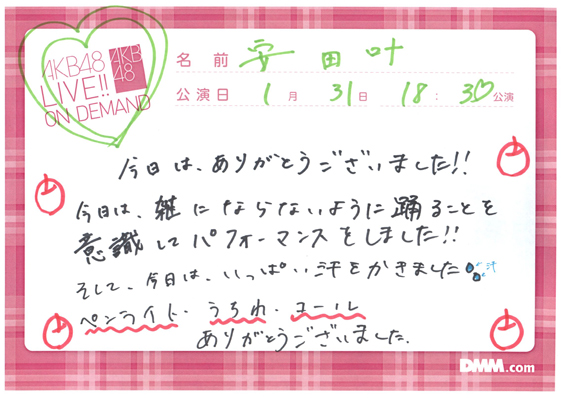 AKB48
LIVE!!
ON DEMAND
AKB
48
名前 安田叶
公演日 1月 31日 18:30公演
今日は、ありがとうございました!!
今日は、雑にならないように踊ることを
意識してパフォーマンスをしました!!
そして、今日は、いっぱい汗をかきました 汗
ペンライト・うちわ・コール
ありがとうございました.
DMM.com